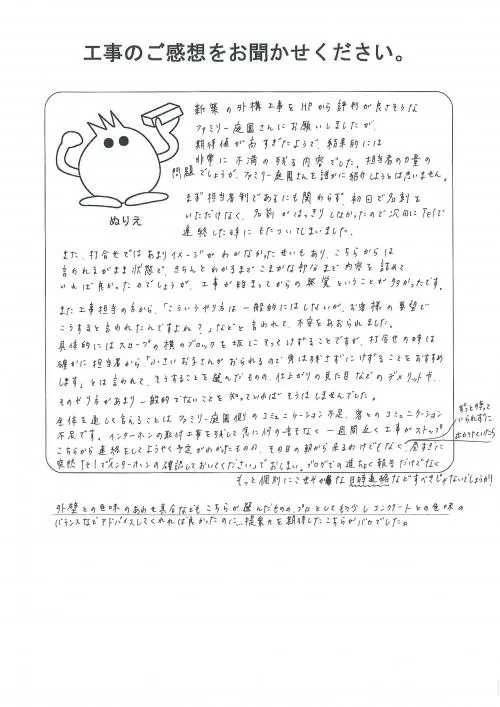 工事のご感想をお聞かせください。
新築の外構工事をHPから評判が良さそうな
ファミリー庭園さんにお願いしましたが、
期待値が高すぎたようで、結果的には
非常に不満の残る内容でした。担当者の力量の
問題でしょうが、ファミリー庭園さんを誰かに紹介しようとは思いません。
ぬりえ
まず担当者制であるにも関わらず、初回で名刺を
いただけなく、名前がはっきりしなかったので次回にTelで
連絡した時にもたついてしまいました。
また、打合せではあまりイメージがわかなかったせいもあり、こちらからは
言われるがまま状態で、きちんとわかるまでこまかな部分まで内容を詰めて
いれば良かったのでしょうが、工事が始まってからの感覚ということが多かったです。
また工事担当の方から、「こういうやり方は一般的にはしないが、お客様の要望で
こうすると言われたんですよね？」などと言われて、不安をあおられました。
具体的にはスロープの横のブロックを坂にそってけずることですが、打合せの時は
確かに担当者から「小さいお子さんがおられるので角は残さずにけずることをおすすめ
します」とは言われて、そうすることを選んだものの、仕上がりの見た目などのデメリットや、
そのやり方があまり一般的でないことを知っていればそうはしませんでした。
全体を通して言えることはファミリー庭園側のコミュニケーション不足、客とのコミュニケーション
不足です。インターホンの取付工事を残して急に何の音もなく一週間近く工事がストップ
こちらから連絡をしてようやく予定がわかったものの、その日の朝から来るわけでもなく、昼すぎに
突然Telで「インターホンの確認しておいてください」でおしまい。ブログでの進ちょく報告だけでなく
ずっと待って
いられずに
出かけていたら
もっと個別にこまやかな日時連絡などすべきじゃないでしょうか!
外壁との色味のあわせ具合などもこちらが選んだものの、プロとしてもう少しコンクリートとの色味の
バランスなどアドバイスしてくれれば良かったのに…提案力を期待したこちらがバカでした。